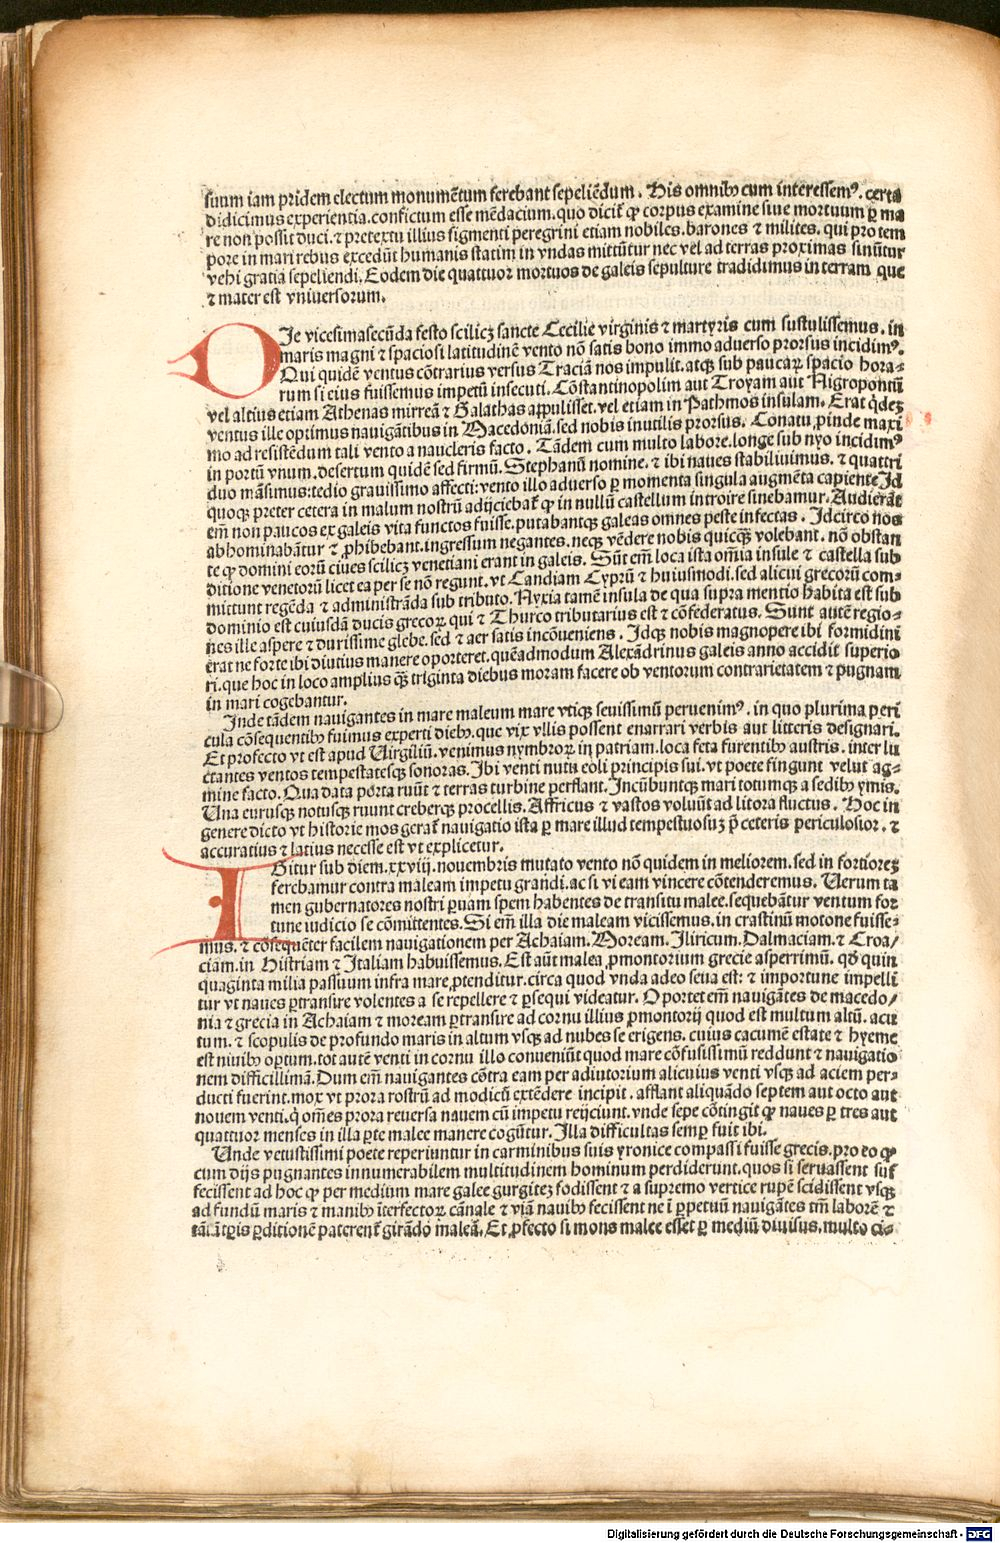 suum iam pridem electum monumẽtum ferebant sepeliẽdum. His omnibꝰ cum interessemꝰ. certa
didicimus experientia.confictum esse mẽdacium.quo dicit̃ qꝫ corpus examine siue mortuum ꝑ ma
re non possit duci.⁊ pretextu illius figmenti peregrini etiam nobiles.barones ⁊ milites. qui pro tem
pore in mari rebus excedũt humanis statim in vndas mittũtur nec vel ad terras proximas sinũtur
vehi gratia sepeliendi. Eodem die quattuor mortuos de galeis sepulture tradidimus in terram que
⁊ mater est vniuersorum.
DIe vicesimasecũda festo scilicꝫ sancte Cecilie virginis ⁊ martyris cum sustulissemus. in
maris magni ⁊ spaciosi latitudinẽ vento nõ satis bono immo aduerso prorsus incidimꝰ.
Qui quidẽ ventus cõtrarius versus Traciã nos impulit.atqꝫ sub paucaꝝ spacio hora-
rum si eius fuissemus impetũ insecuti. Cõstantinopolim aut Troyam aut Nigropontũ
vel altius etiam Athenas mirreã ⁊ Galathas appulisset.vel etiam in Pathmos insulam. Erat q̃dez
ventus ille optimus nauigãtibus in Macedoniã.sed nobis inutilis prorsus. Conatu ꝓinde maxi
mo ad resistẽdum tali vento a naucleris facto. Tãdem cum multo labore.longe sub nyo incidimꝰ
in portũ vnum.desertum quidẽ sed firmũ. Stephanũ nomine.⁊ ibi naues stabiliuimus. ⁊ quattri
duo mãsimus:tedio grauissimo affecti:vento illo aduerso ꝑ momenta singula augmẽta capiente Id
quoqꝫ preter cetera in malum nostrũ adijciebat̃ qꝫ in nullũ castellum introire sinebamur. Audierãt
em̃ non paucos ex galeis vita functos fuisse.putabantqꝫ galeas omnes peste infectas. Idcirco nos
abhominabãtur ⁊ ꝓhibebant.ingressum negantes.neqꝫ vẽdere nobis quicqꝫ̃ volebant. nõ obstan
te qꝫ domini eorũ ciues scilicꝫ venetiani erant in galeis. Sũt em̃ loca ista om̃ia insule ⁊ castella sub
ditione venetorũ licet ea per se nõ regunt. vt Candiam Cyprũ ⁊ huiusmodi.sed alicui grecorũ com-
mittunt regẽda ⁊ administrãda sub tributo. Nyxia tamẽ insula de qua supra mentio habita est sub
dominio est cuiusdã ducis grecoꝝ qui ⁊ Thurco tributarius est ⁊ cõfederatus. Sunt autẽ regio-
nes ille aspere ⁊ durissime glebe.sed ⁊ aer satis incõueniens. Idqꝫ nobis magnopere ibi formidini
erat ne forte ibi diutius manere oporteret.quẽadmodum Alexãdrinus galeis anno accidit superio
ri.que hoc in loco amplius qꝫ̃ triginta diebus moram facere ob ventorum contrarietatem ⁊ pugnam
in mari cogebantur.
Inde tãdem nauigantes in mare maleum mare vtiqꝫ seuissimũ peruenimꝰ. in quo plurima peri
cula cõsequentibꝰ fuimus experti diebꝰ.que vix vllis possent enarrari verbis aut litteris designari.
Et profecto vt est apud Virgiliũ.venimus nymbroꝝ in patriam.loca feta furentibꝰ austris. inter lu
ctantes ventos tempestatesqꝫ sonoras. Ibi venti nutu eoli principis sui. vt poete fingunt velut ag-
mine facto. Qua data porta ruũt ⁊ terras turbine perflant. Incũbuntqꝫ mari totumqꝫ a sedibꝰ ymis.
Una eurusqꝫ notusqꝫ ruunt creberqꝫ procellis. Affricus ⁊ vastos voluũt ad litora fluctus. Hoc in
genere dicto vt historie mos gerat̃ nauigatio ista ꝑ mare illud tempestuosuꝫ p̃ ceteris periculosior. ⁊
accuratius ⁊ latius necesse est vt explicetur.
IGitur sub diem.xxviij.nouembris mutato vento nõ quidem in meliorem.sed in fortiorez
ferebamur contra maleam impetu grandi.ac si vi eam vincere cõtenderemus. Verum ta
men gubernatores nostri paruam spem habentes de transitu malee.sequebãtur ventum for
tune iudicio se cõmittentes. Si em̃ illa die maleam vicissemus.in crastinũ motone fuisse-
mus.⁊ cõsequẽter facilem nauigationem per Achaiam.Moream.Iliricum.Dalmaciam.⁊ Croa/
ciam.in Histriam ⁊ Italiam habuissemus. Est aũt malea ꝓmontorium grecie asperrimũ. qđ quin
quaginta milia passuum infra mare ꝓtenditur.circa quod vnda adeo seua est: ⁊ importune impelli
tur vt naues ꝑtransire volentes a se repellere ⁊ ꝑsequi videatur. Oportet em̃ nauigãtes de macedo/
nia ⁊ grecia in Achaiam ⁊ moream ꝑtransire ad cornu illius ꝓmontorij quod est multum altũ. acu
tum. ⁊ scopulis de profundo maris in altum vsqꝫ ad nubes se erigens. cuius cacumẽ estate ⁊ hyeme
est niuibꝰ oꝑtum.tot autẽ venti in cornu illo conueniũt quod mare cõfusissimũ reddunt ⁊ nauigatio
nem difficillimã. Dum em̃ nauigantes cõtra eam per adiutorium alicuius venti vsqꝫ ad aciem per-
ducti fuerint.mox vt prora rostrũ ad modicũ extẽdere incipit. afflant aliquãdo septem aut octo aut
nouem venti.q̃ om̃es prora reuersa nauem cũ impetu reijciunt.vnde sepe cõtingit qꝫ naues ꝑ tres aut
quattuor menses in illa ꝑte malee manere cogũtur. Illa difficultas semꝑ fuit ibi.
Unde vetustissimi poete reperiuntur in carminibus suis yronice compassi fuisse grecis.pro eo qꝫ
cum dijs pugnantes innumerabilem multitudinem hominum perdiderunt.quos si seruassent suf
fecissent ad hoc qꝫ per medium mare galee gurgitez fodissent ⁊ a supremo vertice rupẽ scidissent vsqꝫ
ad fundũ maris ⁊ manibꝰ ĩterfectoꝝ cãnale ⁊ viã nauibꝰ fecissent ne ĩ ꝑpetuũ nauigãtes tm̃ laborẽ ⁊
tãĩ tꝑis ꝑditionẽ paterent̃ girãdo maleã. Et ꝓfecto si mons malee esset ꝑ mediũ diuisus.multo ci-
Digitalisierung gefördert durch die Deutsche Forschungsgemeinschaft - DFG